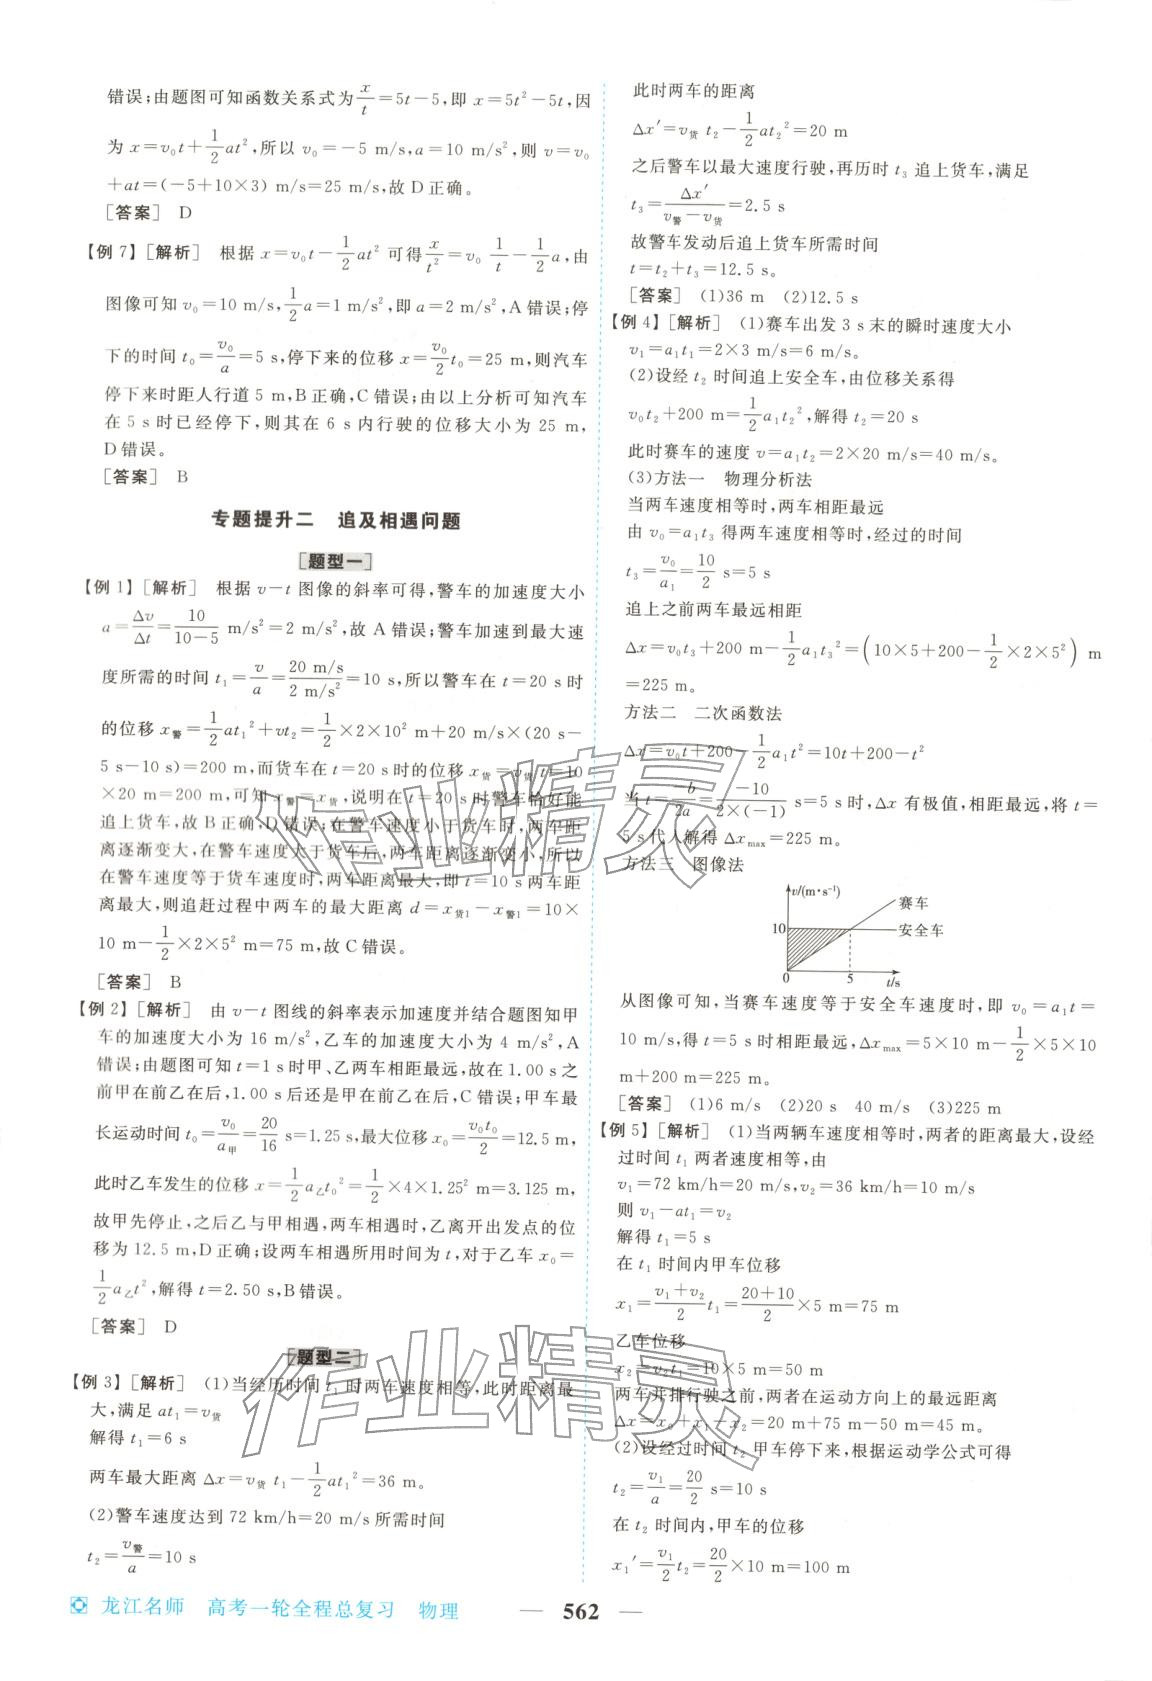 错误;由题图可知函数关系式为x/t=5t-5,即 x=5t²-5t,因
为 x=v₀t+1/2at²,所以 v₀=-5 m/s,a=10 m/s²,则 v=v₀
+at=(-5+10×3) m/s=25 m/s,故 D 正确。
[答案] D
【例 7】[解析] 根据 x=v₀t-1/2at² 可得x/t²=v₀ 1/t-1/2a,由
图像可知 v₀=10 m/s,1/2a=1 m/s²,即 a=2 m/s²,A 错误;停
下的时间 t₀=v₀/a=5 s,停下来的位移 x=v₀/2t₀=25 m,则汽车
停下来时距人行道 5 m,B 正确,C 错误;由以上分析可知汽车
在 5 s 时已经停下,则其在 6 s 内行驶的位移大小为 25 m,
D 错误。
[答案] B
专题提升二 追及相遇问题
[题型一]
【例 1】[解析] 根据 v-t 图像的斜率可得,警车的加速度大小
a=Δv/Δt=10/(10-5) m/s²=2 m/s²,故 A 错误;警车加速到最大速
度所需的时间 t₁=v/a=(20 m/s)/(2 m/s²)=10 s,所以警车在 t=20 s 时
的位移 x警=1/2at₁²+vt₂=1/2×2×10² m+20 m/s×(20-
5 s-10 s)=200 m,而货车在 t=20 s 时的位移 x货=v货 t=10
×20 m=200 m,可知 x警=x货,说明在 t=20 s 时警车恰好能
追上货车,故 B 正确,D 错误;在警车速度小于货车时,两车距
离逐渐变大,在警车速度大于货车后,两车距离逐渐变小,所以
在警车速度等于货车速度时,两车距离最大,即 t=10 s 两车距
离最大,则追赶过程中两车的最大距离 d=x货1-x警1=10×
10 m-1/2×2×5² m=75 m,故 C 错误。
[答案] B
【例 2】[解析] 由 v-t 图线的斜率表示加速度并结合题图知甲
车的加速度大小为 16 m/s²,乙车的加速度大小为 4 m/s²,A
错误;由题图可知 t=1 s 时甲、乙两车相距最远,在 1.00 s 之
前甲在前乙在后,1.00 s 后还是甲在前乙在后,C 错误;甲车最
长运动时间 t₀=v₀/a甲=20/16 s=1.25 s,最大位移 x₀=v₀t₀/2=12.5 m,
此时乙车发生的位移 x=1/2a乙t₀²=1/2×4×1.25² m=3.125 m,
故甲先停止,之后乙与甲相遇,两车相遇时,乙离开出发点的位
移为 12.5 m,D 正确;设两车相遇所用时间为 t,对于乙车 x₀=
1/2a乙t²,解得 t=2.50 s,B 错误。
[答案] D
[题型二]
【例 3】[解析] (1)当经历时间 t₁ 时两车速度相等,此时距离最
大,满足 at₁=v货
解得 t₁=6 s
两车最大距离 Δx=v货 t₁-1/2at₁²=36 m。
(2)警车速度达到 72 km/h=20 m/s 所需时间
t₂=v警/a=10 s
此时两车的距离
Δx′=v货 t₂-1/2at₂²=20 m
之后警车以最大速度行驶,再历时 t₃ 追上货车,满足
t₃=Δx′/(v警-v货)=2.5 s
故警车发动后追上货车所需时间
t=t₂+t₃=12.5 s。
[答案] (1)36 m (2)12.5 s
【例 4】[解析] (1)赛车出发 3 s 末的瞬时速度大小
v₁=a₁t₁=2×3 m/s=6 m/s。
(2)设经 t₂ 时间追上安全车,由位移关系得
v₀t₂+200 m=1/2a₁t₂²,解得 t₂=20 s
此时赛车的速度 v=a₁t₂=2×20 m/s=40 m/s。
(3)方法一 物理分析法
当两车速度相等时,两车相距最远
由 v₀=a₁t₃ 得两车速度相等时,经过的时间
t₃=v₀/a₁=10/2 s=5 s
追上之前两车最远相距
Δx=v₀t₃+200 m-1/2a₁t₃²=(10×5+200-1/2×2×5²) m
=225 m。
方法二 二次函数法
Δx=v₀t+200-1/2a₁t²=10t+200-t²
当 t=-b/2a=-10/(2×(-1)) s=5 s 时,Δx 有极值,相距最远,将 t=
5 s代人解得 Δxmax=225 m。
方法三 图像法
v/(m·s⁻¹)
赛车
10
安全车
0 5 t/s
从图像可知,当赛车速度等于安全车速度时,即 v₀=a₁t=
10 m/s,得 t=5 s 时相距最远,Δxmax=5×10 m-1/2×5×10
m+200 m=225 m。
[答案] (1)6 m/s (2)20 s 40 m/s (3)225 m
【例 5】[解析] (1)当两辆车速度相等时,两者的距离最大,设经
过时间 t₁ 两者速度相等,由
v₁=72 km/h=20 m/s,v₂=36 km/h=10 m/s
则 v₁-at₁=v₂
解得 t₁=5 s
在 t₁ 时间内甲车位移
x₁=(v₁+v₂)/2t₁=(20+10)/2×5 m=75 m
乙车位移
x₂=v₂t₁=10×5 m=50 m
两车并排行驶之前,两者在运动方向上的最远距离
Δx=x₀+x₁-x₂=20 m+75 m-50 m=45 m。
(2)设经过时间 t₂ 甲车停下来,根据运动学公式可得
t₂=v₁/a=20/2 s=10 s
在 t₂ 时间内,甲车的位移
x₁′=v₁/2t₂=20/2×10 m=100 m
作业精灵
作业精灵
龙江名师 高考一轮全程总复习 物理
— 562 —